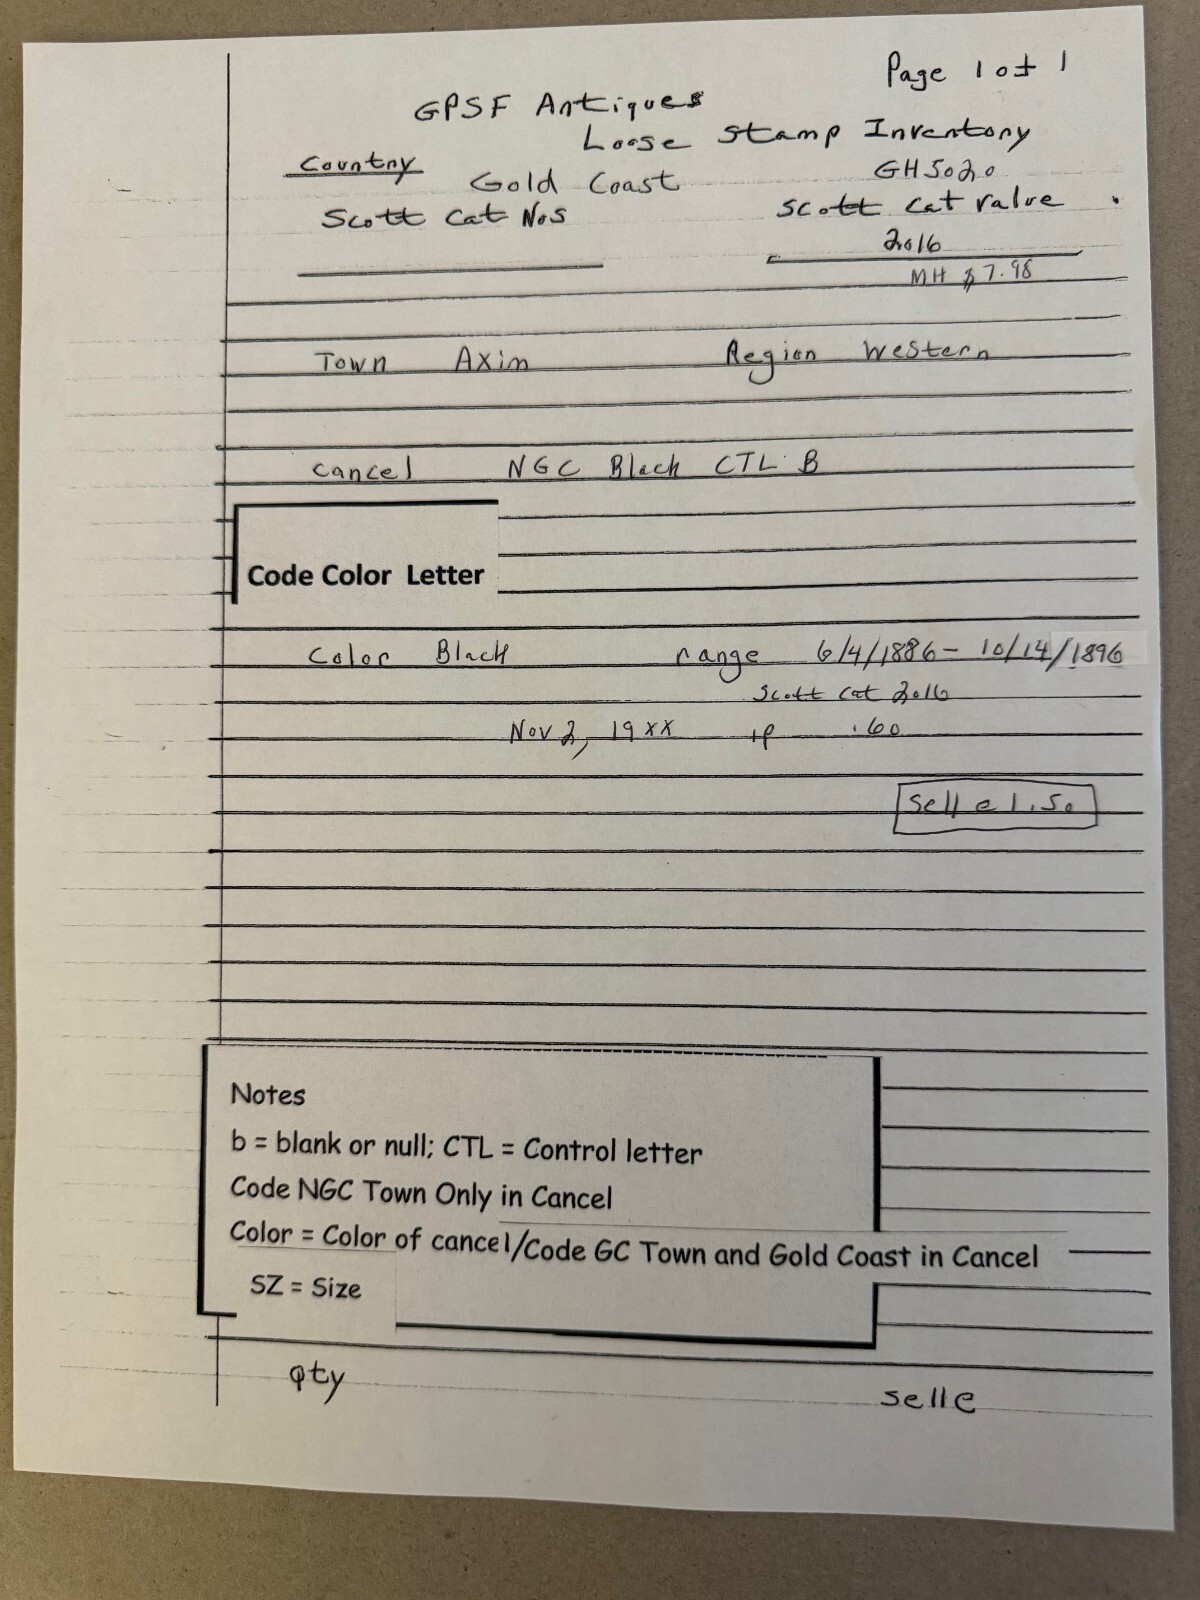 Page 1 of 1
GPSF Antiques
Loose Stamp Inventory
Country
Gold Coast
GH5020
Scott Cat Nos
Scott Cat Value
2016
MH $7.98
Town Axim Region Western
Cancel NGC Black CTL B
Code Color Letter
Color Black range 6/4/1886 - 10/14/1896
Scott Cat 2016
Nov 2, 19xx 1p .60
Sell @ 1.50
Notes
b = blank or null; CTL = Control letter
Code NGC Town Only in Cancel
Color = Color of cancel/Code GC Town and Gold Coast in Cancel
SZ = Size
qty
sell @